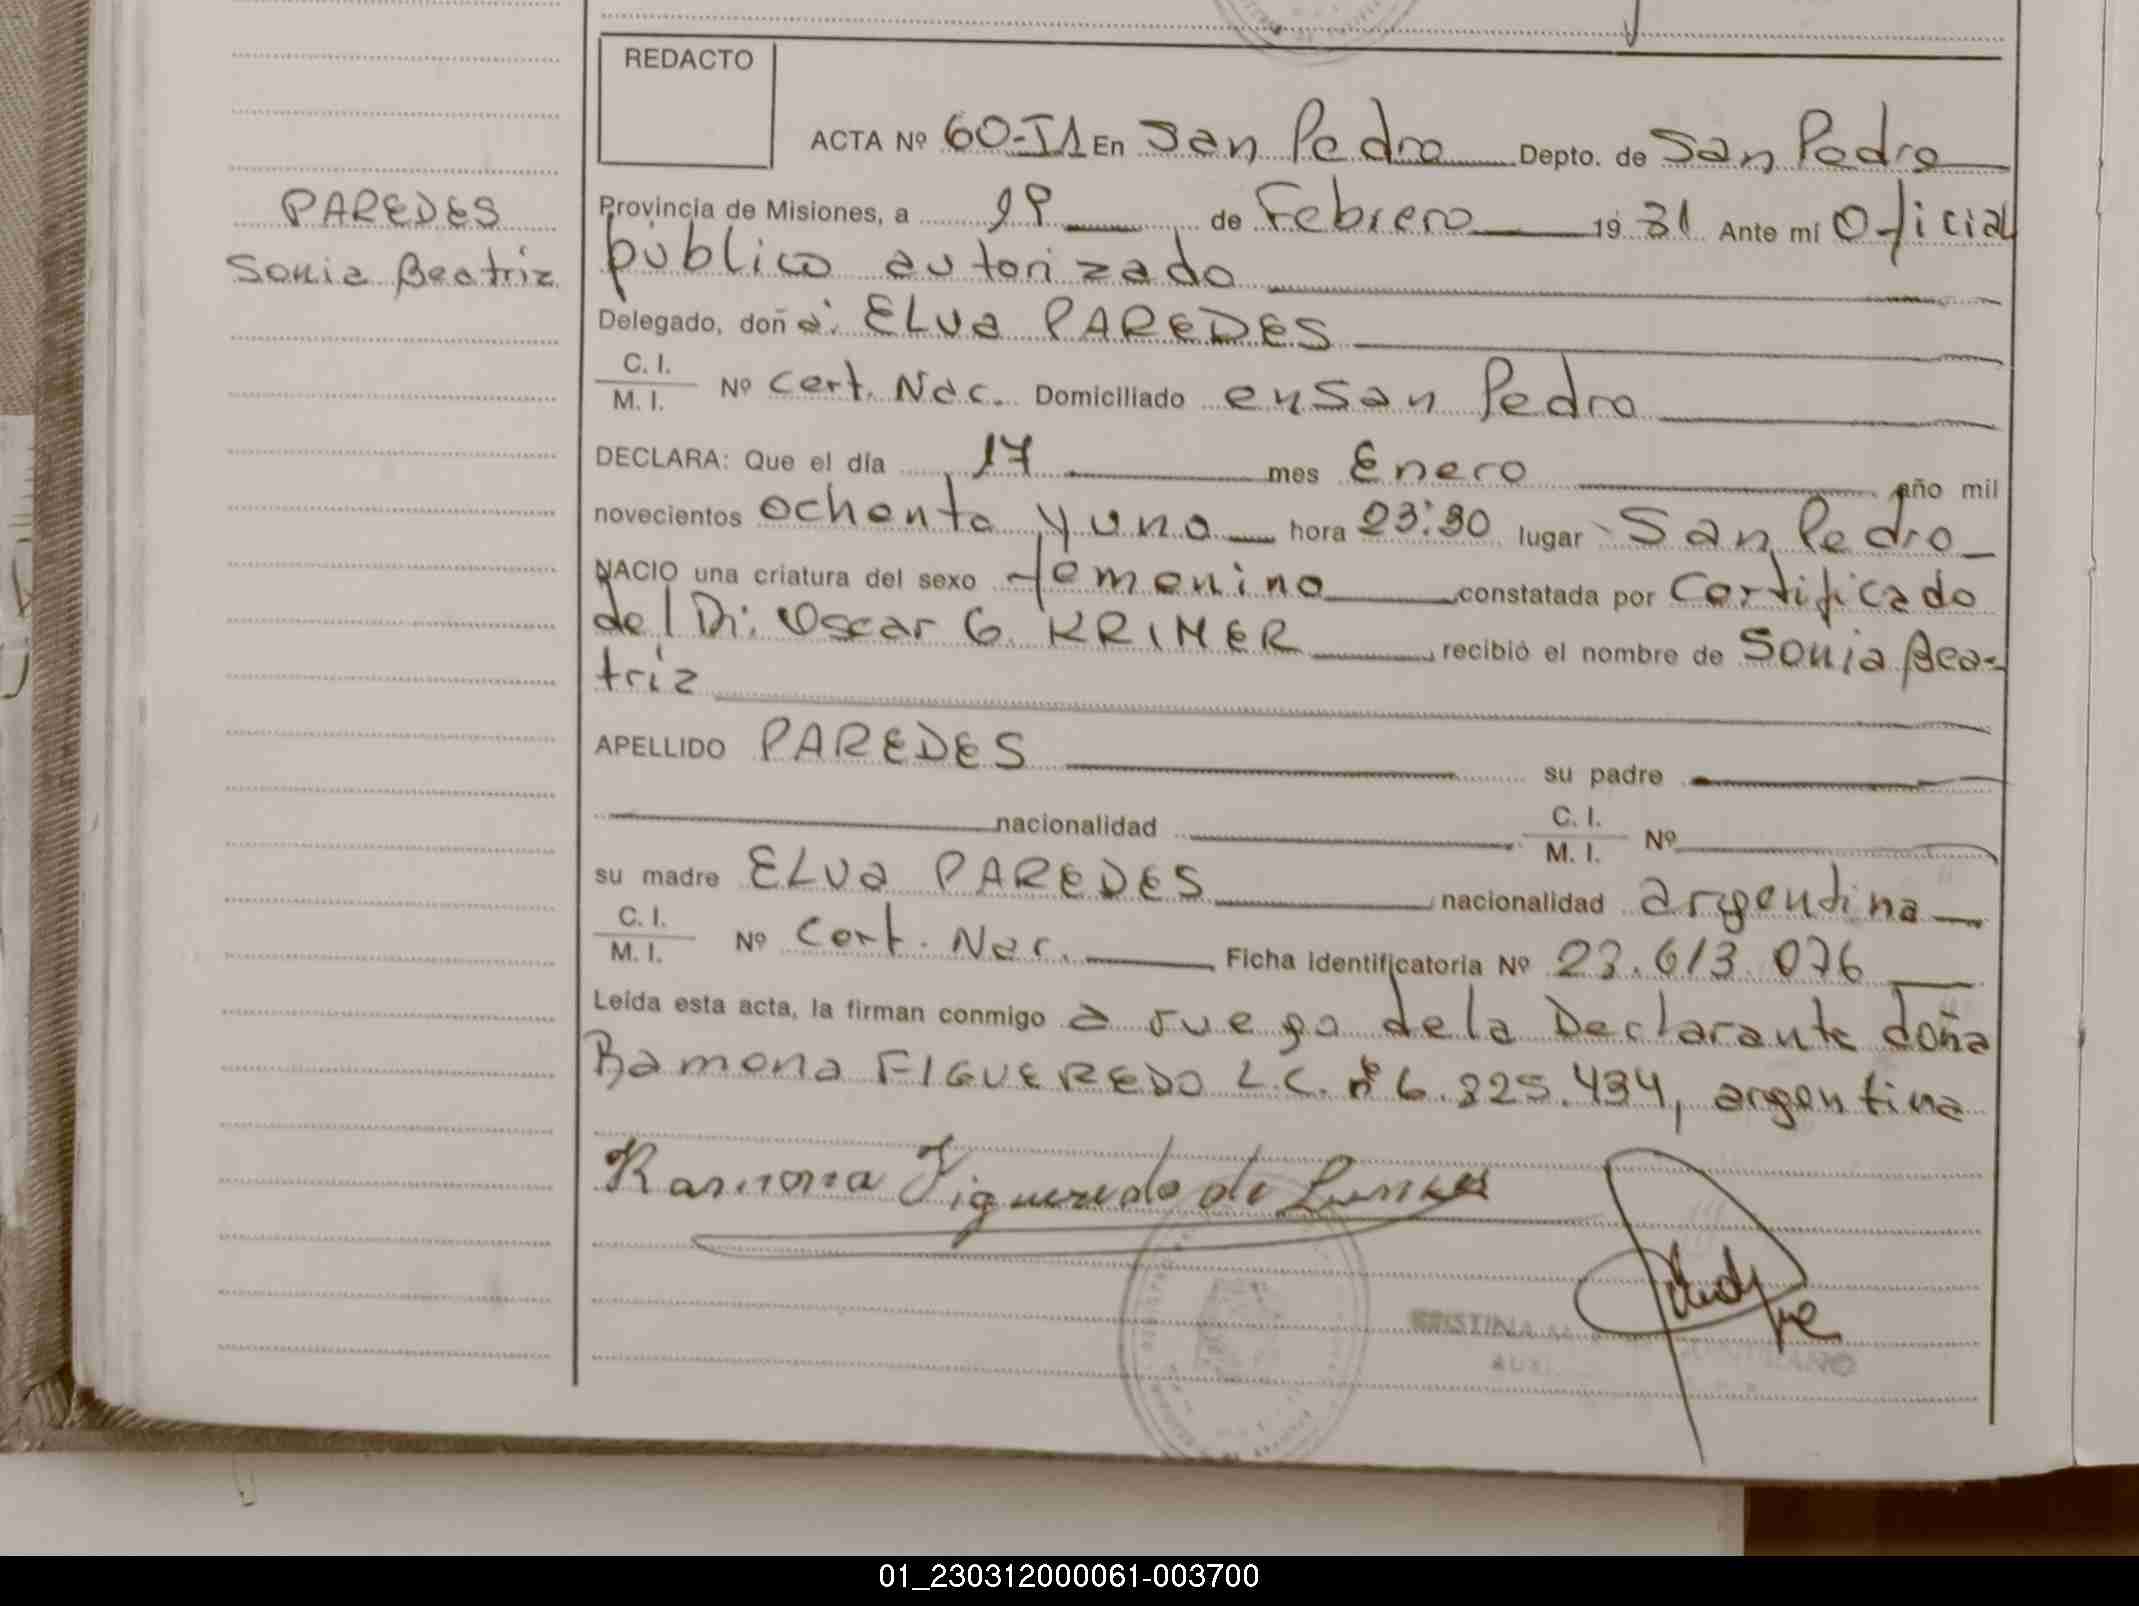 REDACTO
ACTA Nº 60-I1 En San Pedro Depto. de San Pedro
PAREDES
Sonia Beatriz
Provincia de Misiones, a 19 de Febrero 19 81 Ante mí Oficial
público autorizado
Delegado, doña: ELVa PAREDES
C. I.
M. I. Nº Cert. Nac. Domiciliado en San Pedro
DECLARA: Que el día 17 mes Enero año mil
novecientos ochenta y uno hora 23:30 lugar San Pedro
NACIO una criatura del sexo femenino constatada por Certificado
del Dr: Oscar G. KRIMER recibió el nombre de Sonia Bea-
triz
APELLIDO PAREDES su padre
nacionalidad C. I.
M. I. Nº
su madre ELVa PAREDES nacionalidad argentina
C. I.
M. I. Nº Cert. Nac. Ficha identificatoria Nº 23.613.076
Leída esta acta, la firman conmigo a ruego de la Declarante doña
Ramona FIGUEREDO L.C. nº 6.825.434, argentina
Ramona Figueredo de
01_230312000061-003700